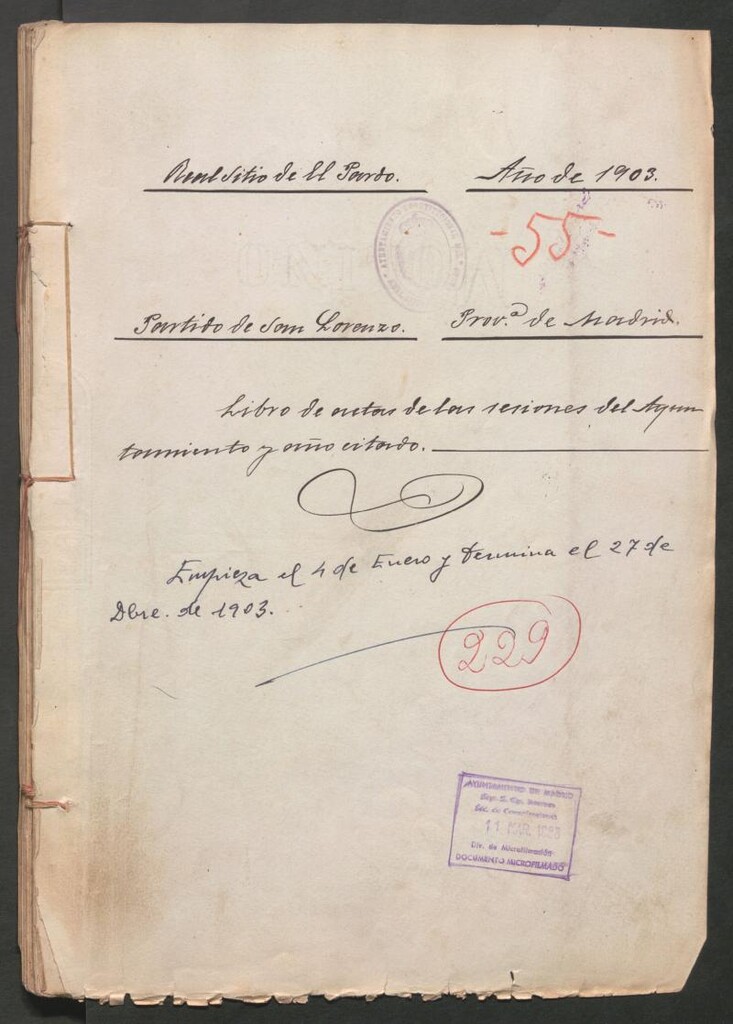 Real Sitio de El Pardo. Año de 1903.
-55-
AYUNTAMIENTO CONSTITUCIONAL DEL
Partido de San Lorenzo. Prov.ª de Madrid.
Libro de actas de las sesiones del Ayun
tamiento y año citado.
Empieza el 4 de Enero y termina el 27 de
Dbre. de 1903.
229
AYUNTAMIENTO DE MADRID
11 MAR. 1983
Div. de Microfilmación
DOCUMENTO MICROFILMADO